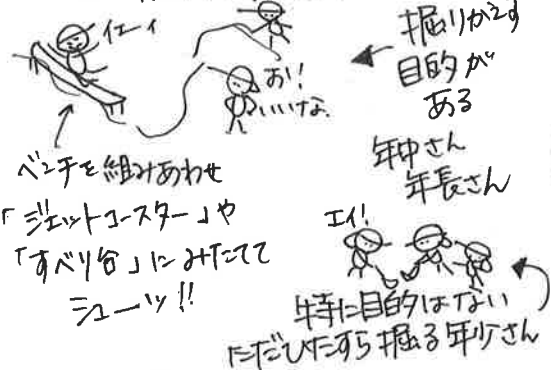 イエーイ
お!
いいな。
掘りかえす
目的が
ある
年中さん
年長さん
ベンチを組みあわせ
「ジェットコースター」や
「すべり台」にみたてて
シューッ!!
エイ!
特に目的はない
ただひたすら掘る年少さん